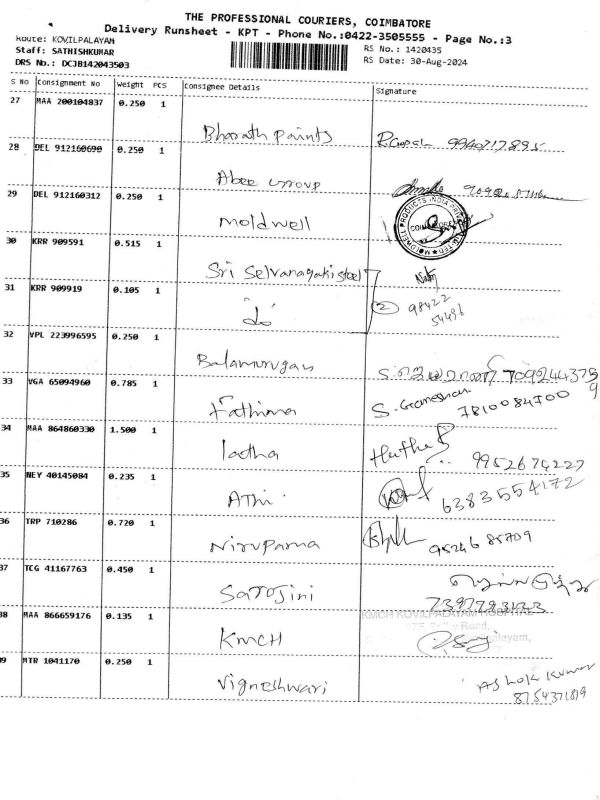 THE PROFESSIONAL COURIERS, COIMBATORE
Delivery Runsheet - KPT - Phone No.:0422-3505555 - Page No.:3
Route: KOVILPALAYAM
RS No.: 1420435
Staff: SATHISHKUMAR
RS Date: 30-Aug-2024
DRS No.: DCJB142043503
S No Consignment No Weight PCS Consignee Details Signature
27 MAA 200104837 0.250 1
Bharath paints R.Gopal 9940717895
28 DEL 912160690 0.250 1
Abee Group
29 DEL 912160312 0.250 1
moldwell
30 KRR 909591 0.515 1
Sri Selvanayaki steel
31 KRR 909919 0.105 1
do 2 98422
54496
32 VPL 223996595 0.250 1
Balamurugan
33 VGA 65094960 0.785 1
Fathima S. Ganeshan
7810084700
34 MAA 864860330 1.500 1
ladha
9952674227
35 NEY 40145084 0.235 1
AThi 6383554172
36 TRP 710286 0.720 1
Nirupama 9524685709
37 TCG 41167763 0.450 1
Sarojini
38 MAA 866659176 0.135 1
KMCH KOVILPALAYAM HOSPITAL
KMCH
39 MTR 1041170 0.250 1
Vigneshwari Ashok Kumar
8754371819